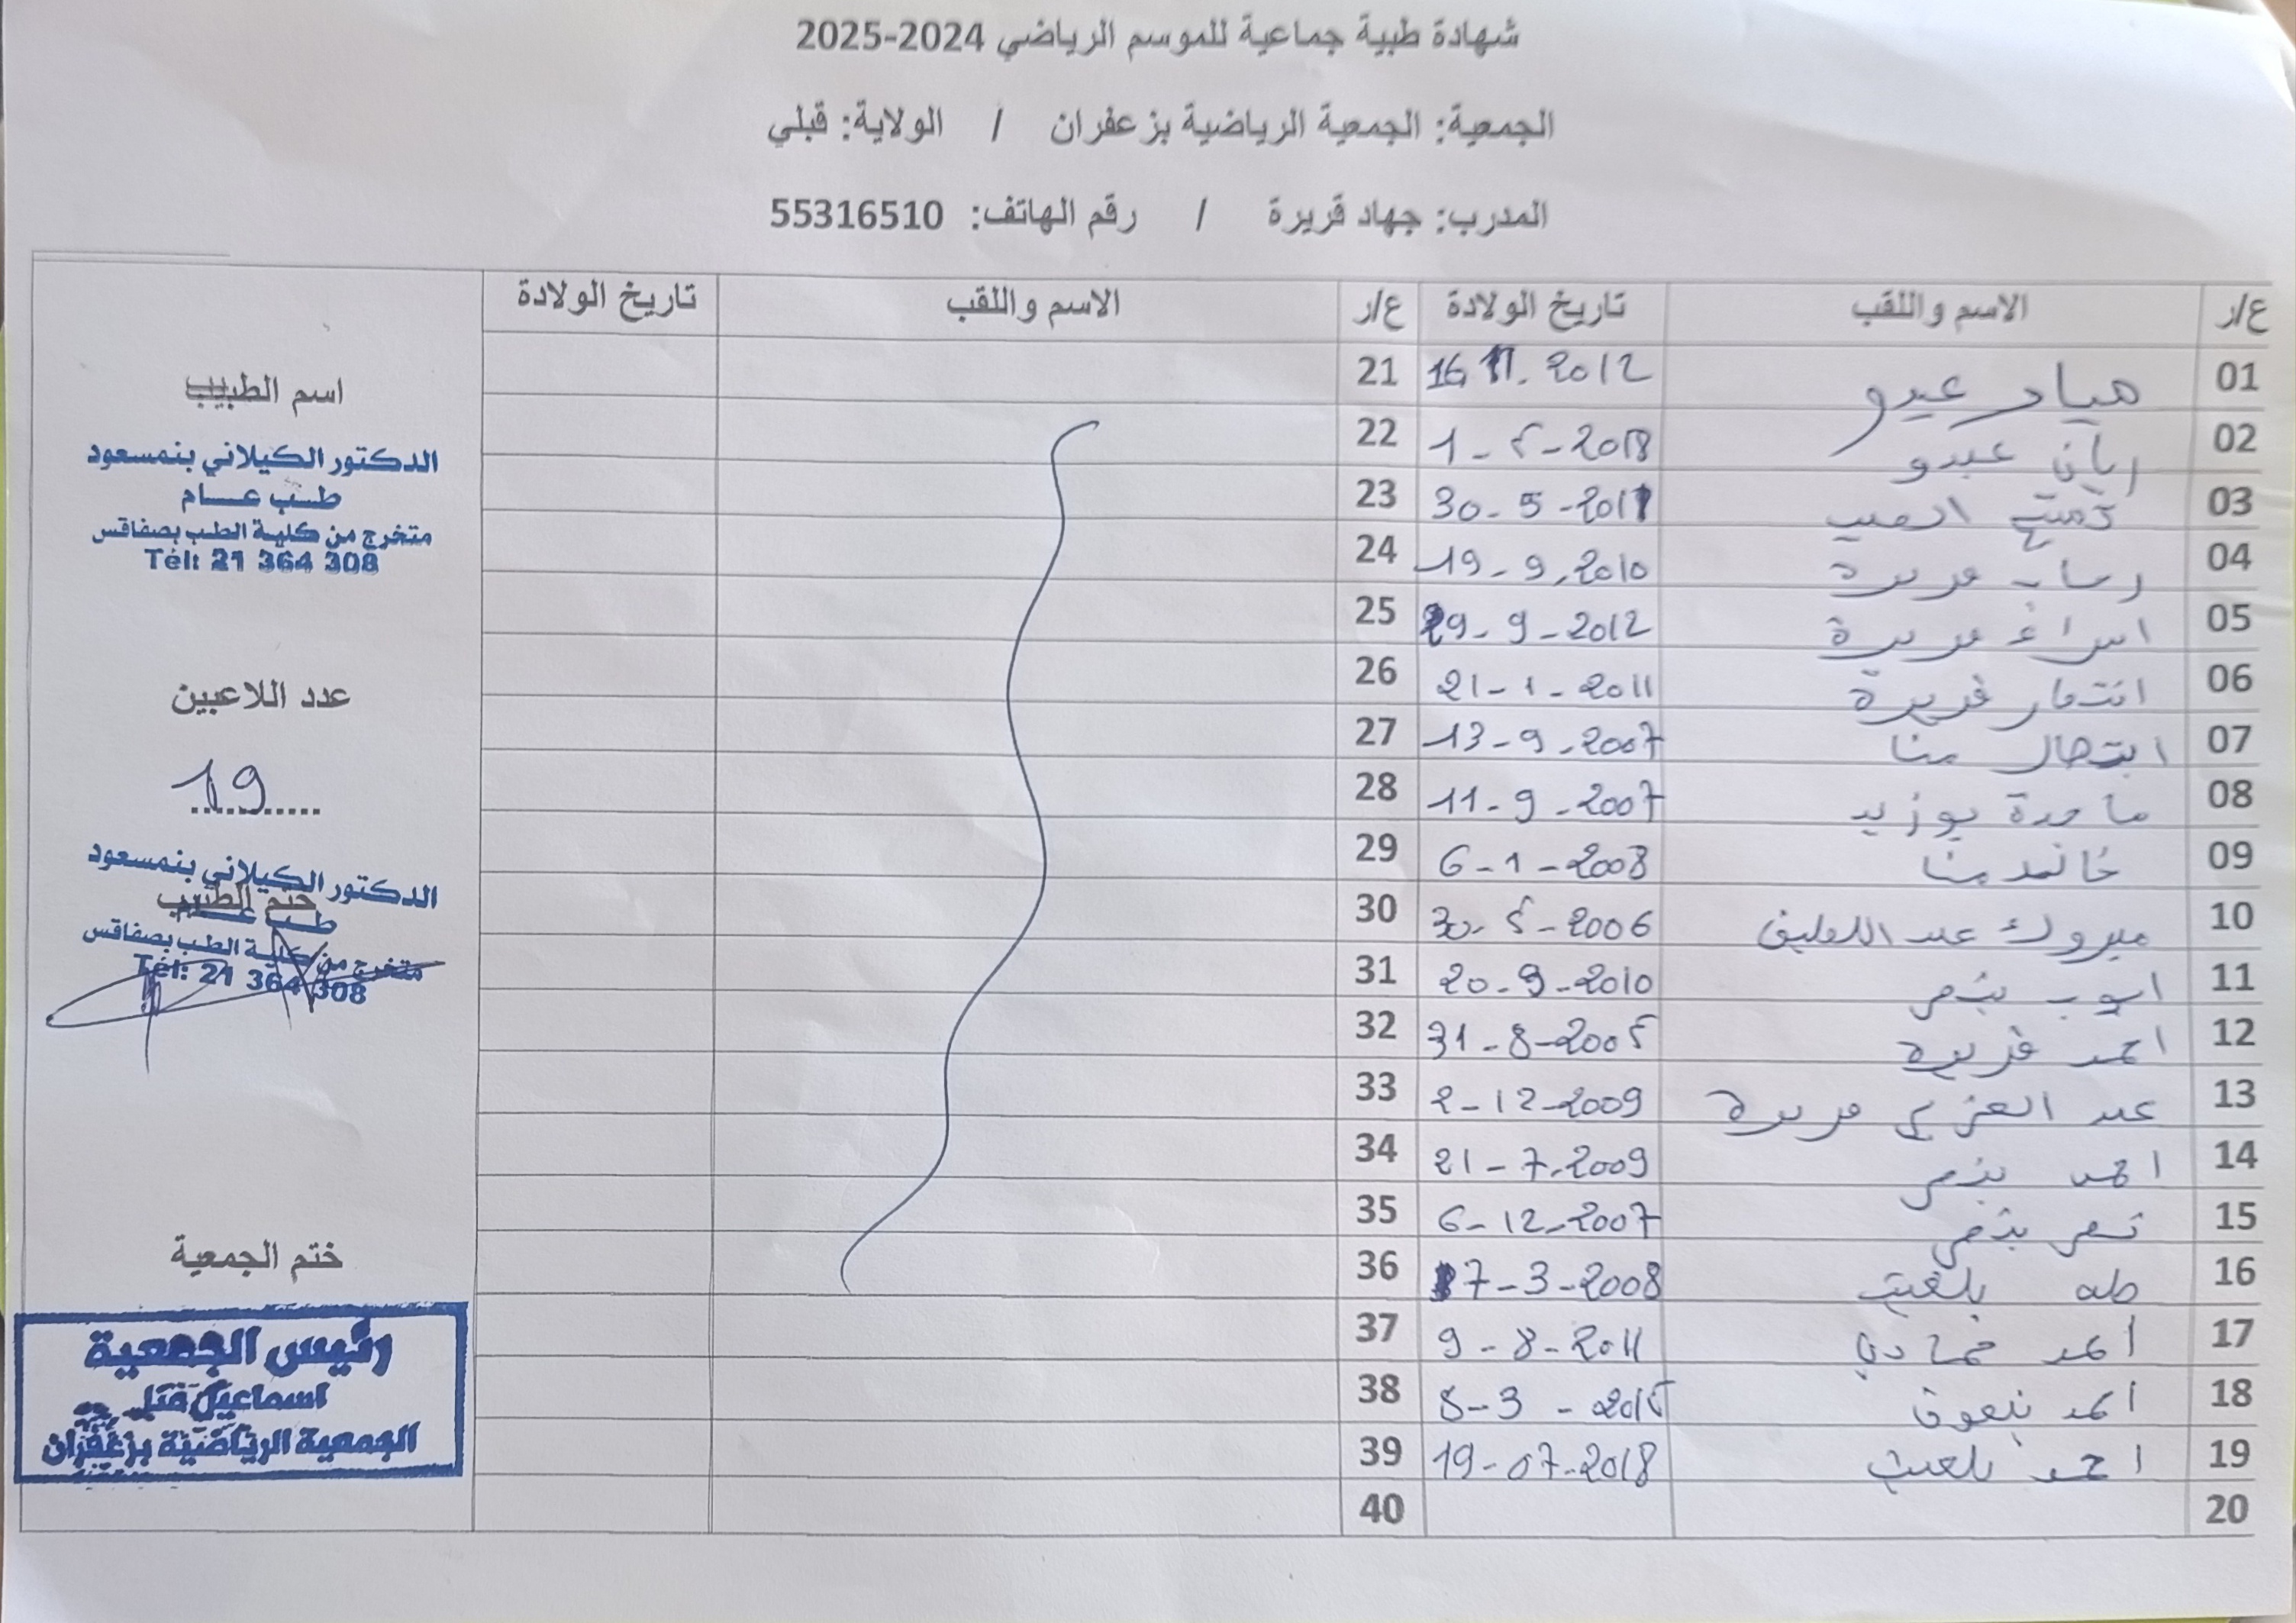 شهادة طبية جماعية للموسم الرياضي 2024-2025
الجمعية: الجمعية الرياضية بزعفران / الولاية: قبلي
المدرب: جهاد قريرة / رقم الهاتف: 55316510
ع/ر الاسم واللقب تاريخ الولادة ع/ر الاسم واللقب تاريخ الولادة
01 عبدو 2012 21
02 ريان عبدو 1-5-2018 22
03 30-5-2011 23
04 قريرة 19-9-2010 24
05 اسراء قريرة 29-9-2012 25
06 انتصار قريرة 21-1-2011 26
07 ابتهال 13-9-2007 27
08 ماجدة بوزيد 11-9-2007 28
09 خالد 6-1-2008 29
10 مبروك عبد اللطيف 30-5-2006 30
11 ايوب بنصر 20-9-2010 31
12 احمد قريرة 31-8-2005 32
13 عبد العزيز قريرة 2-12-2009 33
14 احمد بنصر 21-7-2009 34
15 نصر بنصر 6-12-2007 35
16 طه بلغيث 7-3-2008 36
17 أحمد حمادي 9-8-2011 37
18 احمد 8-3-2015 38
19 احمد بلغيث 19-07-2018 39
20 40
اسم الطبيب
الدكتور الكيلاني بنمسعود
طب عام
متخرج من كلية الطب بصفاقس
Tél: 21 364 308
عدد اللاعبين
19
الدكتور الكيلاني بنمسعود
ختم الطبيب
طب عام
متخرج من كلية الطب بصفاقس
Tél: 21 364 308
ختم الجمعية
رئيس الجمعية
اسماعيل
الجمعية الرياضية بزعفران